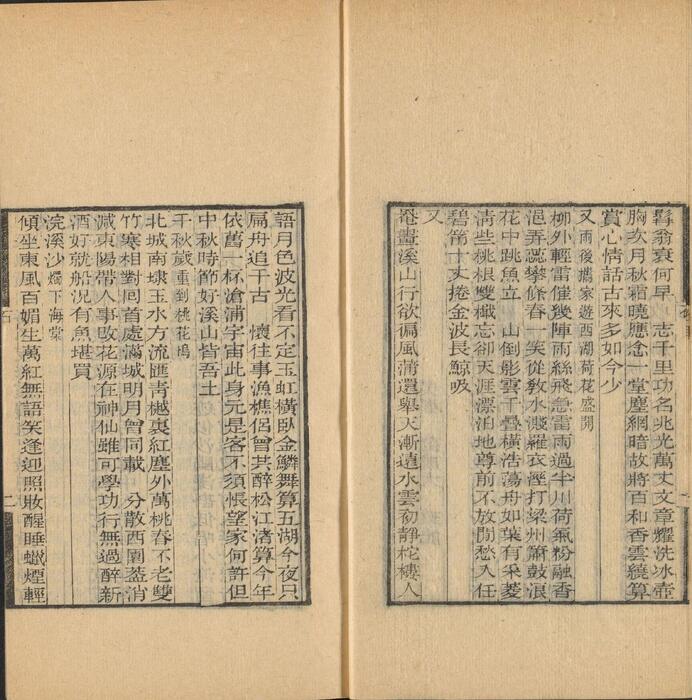 翁衰何早 志千里功名兆光萬丈文章耀洗冰壺
胸次月秋霜曉應念一堂塵網暗故將百和香雲繞算
賞心情話古來多如今少
又雨後攜家遊西湖荷花盛開
柳外輕雷催幾陣雨絲飛急雷雨過半川荷氣粉融香
浥弄蕊攀條春一笑從教水濺羅衣溼打梁州簫鼓浪
花中跳魚立 山倒影雲千疊橫浩蕩舟如葉有采菱
清些桃根雙檝忘却天涯漂泊地尊前不放閒愁入任
碧筩十丈捲金波長鯨吸
又
罨畫溪山行欲徧風蒲還舉天漸遠水雲初靜柁樓人
語月色波光看不定玉虹橫臥金鱗舞算五湖今夜只
扁舟追千古 懷往事漁樵侶曾共醉松江渚算今年
依舊一杯滄浦宇宙此身元是客不須悵望家何許但
中秋時節好溪山皆吾土
千秋歲重到桃花塢
北城南埭玉水方流匯青樾裏紅塵外萬桃春不老雙
竹寒相對回首處滿城明月曾同載 分散西園葢消
減東陽帶人事改花源在神仙雖可學功行無過醉新
酒好就船況有魚堪買
浣溪沙燭下海棠
傾坐東風百媚生萬紅無語笑逢迎照妝醒睡蠟煙輕
石
二